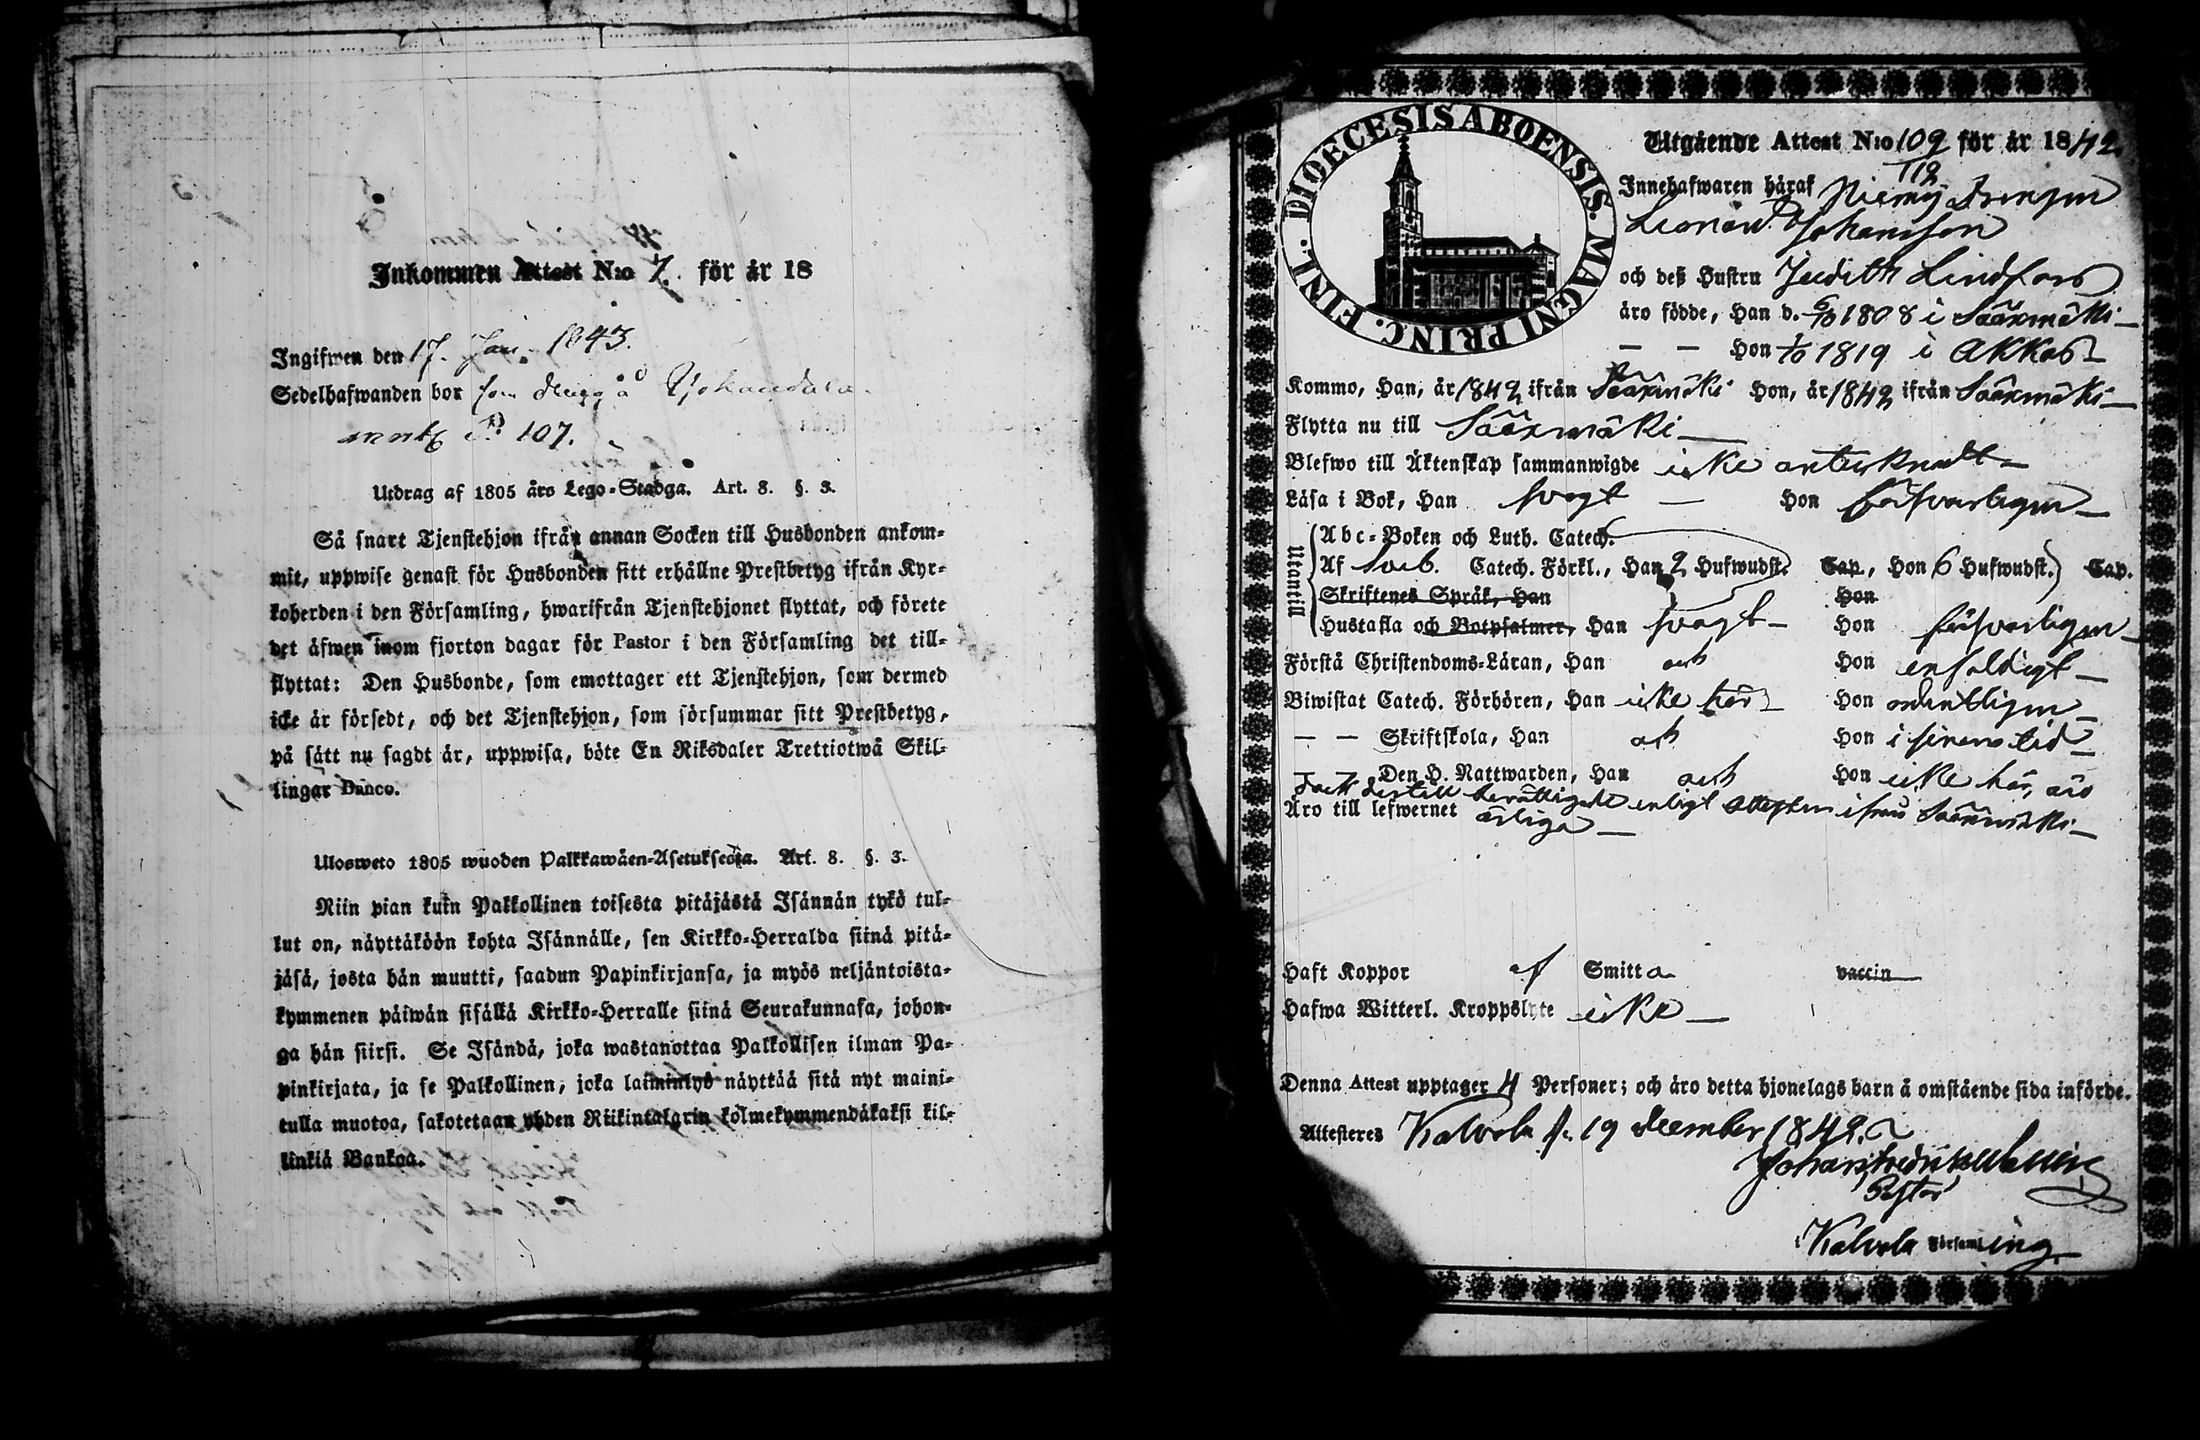 Inkommen Attest N:o 7. för år 18
Ingifwen den 17. Jan. 1843.
Sedelhafwanden bor som dreng å Johandala
N:o 107.
Utdrag af 1805 års Lego-Stadga. Art. 8. §. 3.
Så snart Tjenstehjon ifrån annan Socken till Husbonden ankom-
mit, uppwise genast för Husbonden sitt erhållne Prestbetyg ifrån Kyr-
koherden i den Församling, hwarifrån Tjenstehjonet flyttat, och förete
det äfwen inom fjorton dagar för Pastor i den Församling det till-
flyttat: Den Husbonde, som emottager ett Tjenstehjon, som dermed
icke är försedt, och det Tjenstehjon, som försummar sitt Prestbetyg,
på sätt nu sagdt är, uppwisa, böte En Riksdaler Trettiotwå Skil-
lingar Banco.
Ulosweto 1805 wuoden Palkkawäen-Asetuksesta. Art. 8. §. 3.
Niin pian kuin Palkollinen toisesta pitäjästä Isännän tykö tul-
lut on, näyttäköön kohta Isännälle, sen Kirkko-Herralda siinä pitä-
jäsä, josta hän muutti, saadun Papinkirjansa, ja myös neljäntoista-
kymmenen päiwän sisällä Kirkko-Herralle siinä Seurakunnasa, johon-
ga hän siirsi. Se Isändä, joka wastanottaa Palkollisen ilman Pa-
pinkirjata, ja se Palkollinen, joka laiminlyö näyttää sitä nyt maini-
tulla muotoa, sakotetaan yhden Riikintalarin kolmekymmendäkaksi kil-
linkiä Bankoa.
DIOECESIS ABOENSIS. MAGNI PRINC. FINL.
Utgående Attest N:o 109 för år 1842
Innehafwaren häraf Drengen
Leonard Johansson
och deß Hustru Judith Lindfors
äro födde, Han d. 1808 i Sääxmäki
— — Hon 1819 i Akkas
Kommo, Han, år 1842 ifrån Sääxmäki Hon, år 1842 ifrån Sääxmäki
Flytta nu till Sääxmäki
Blefwo till Äktenskap sammanwigde icke antecknadt
Läsa i Bok, Han svagt — Hon försvarligen
Utantill
Abc-Boken och Luth. Catech.
Af Sveb. Catech. Förkl., Han 2 Hufwudst. Cap, Hon 6 Hufwudst. Cap.
Skriftenes Språk, Han Hon
Hustafla och Botpsalmer, Han svagt Hon försvarligen
Förstå Christendoms-Läran, Han och Hon enfaldigt
Biwistat Catech. Förhören, Han icke här Hon ordentligen
— — Skriftskola, Han och Hon i sinom tid
— — Den H. Nattwarden, Han och Hon icke här, äro
dock dertill berättigade enligt attesten ifrån Sääxmäki
Äro till lefwernet ärliga
Haft Koppor af Smitta vaccin
Hafwa Witterl. Kroppslyte icke
Denna Attest upptager 4 Personer; och äro detta hjonelags barn å omstående sida införde.
Attesteras Kalvola d. 19 december 1842.
Pastor
i Kalvola Församling